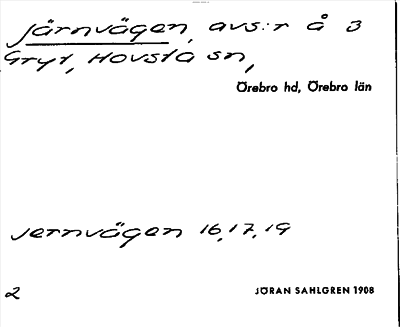 Järnvägen, avs:r å 3
Gryt, Hovsta sn,
Örebro hd, Örebro län
Jernvägen 16,17,19
2
JÖRAN SAHLGREN 1908